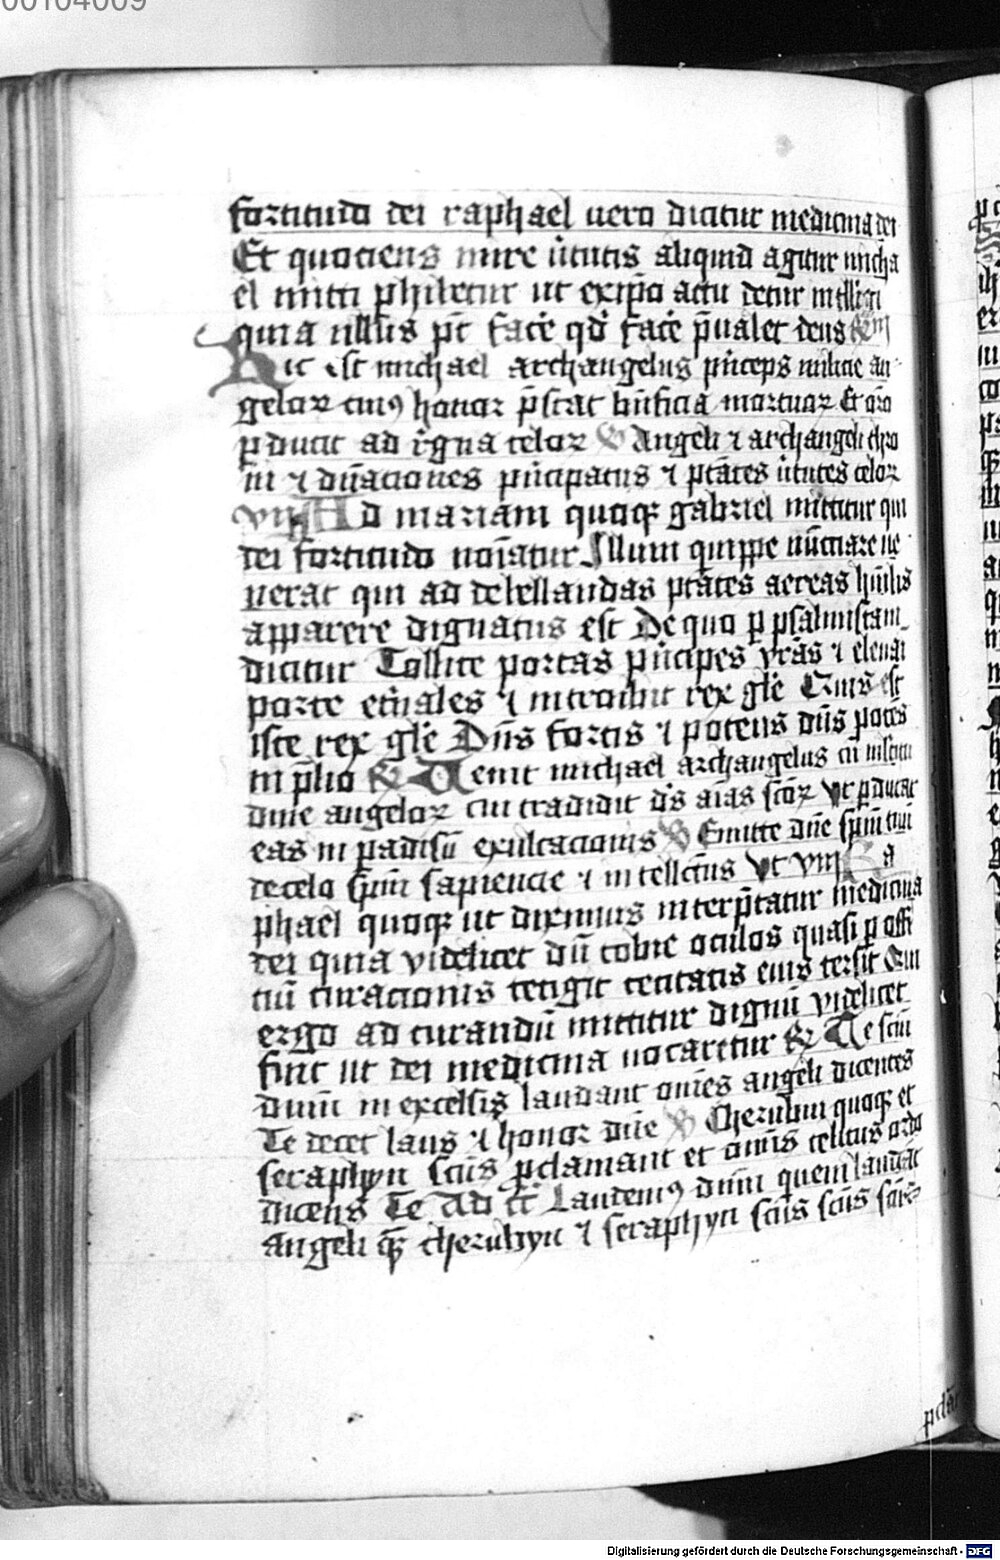 00104009
fortitudo dei raphael uero dicitur medicina dei
Et quociens mire ũtutis aliquid agitur micha
el mitti ꝑhibetur ut ex ipo actu detur intelligi
quia nullus põt facẽ qd̾ facẽ p̃ualet deus
Hic est michael archangelus pⁱnceps milicie an
geloꝝ cuiꝰ honor p̃stat bñficia mortuaꝝ Et
ꝑducit ad rᵉgna celoꝝ ℣ Angeli ⁊ archangeli thro
ni ⁊ dñaciones pⁱncipatus ⁊ ptãtes ũtutes celoꝝ
viij Ad mariam quoqꝫ gabriel mittitur qui
dei fortitudo noĩatur Illum quippe nũctiare ue
nerat qui ad debellandas ptãtes aereas hũilis
apparere dignatus est De quo ꝑ psalmistam
dicitur Tollite portas pⁱncipes vr̃as ⁊ eleuai
porte et̃nales ⁊ introibit rex gl̃e Quis est
iste rex gl̃e Dñs fortis ⁊ potens dñs potẽs
in p̃lio ℟ Uenit michael archangelus cũ mltitu
dine angeloꝝ cui tradidit d̃s aĩas sc̃oꝝ Vt ꝑducat
eas in padisũ exultacionis ℣ Emitte dñe spm̃ tuũ
de celo spm̃ sapiencie ⁊ intellectus Vt viij Ra
phael quoqꝫ ut diximus interp̃tatur medicina
dei quia videlicet dũ tobie oculos quasi ꝑ offi
ciũ curacionis tetigit cecitatis eius tersit Qui
ergo ad curandũ mittitur dignũ videlicet
fuit ut dei medicina uocaretur ℟ Te sc̃m
dñm in excelsis laudant omẽs angeli dicentes
Te decet laus ⁊ honor dñe ℣ Cherubin quoqꝫ et
seraphyn sc̃us ꝓclamant et omĩs celicus ordo
dicens Te Ad Laudemꝰ dñm quem laudãt
Angeli cherubyn ⁊ seraphyn sc̃us sc̃us sc̃us
Digitalisierung gefördert durch die Deutsche Forschungsgemeinschaft - DFG